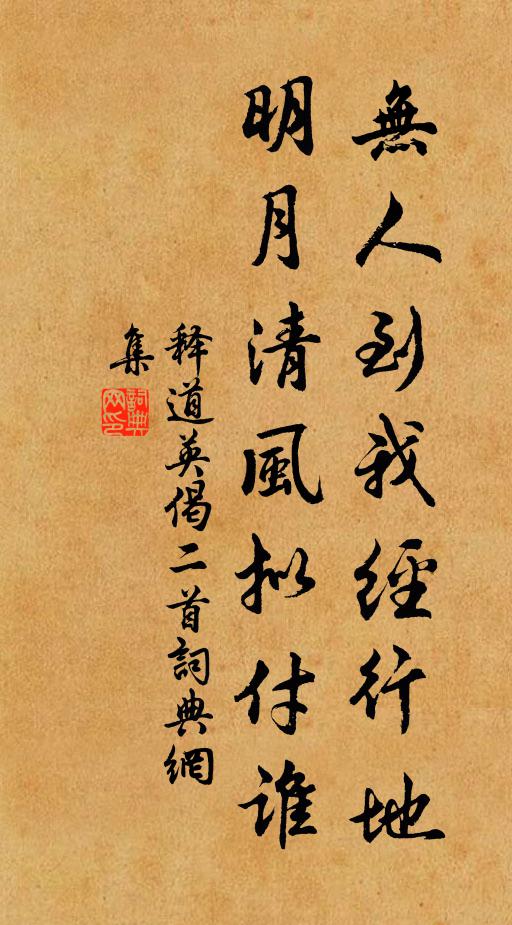 無人到我經行地
明月清風拟付谁
释道英偈二首詞典網
集
詞典网印